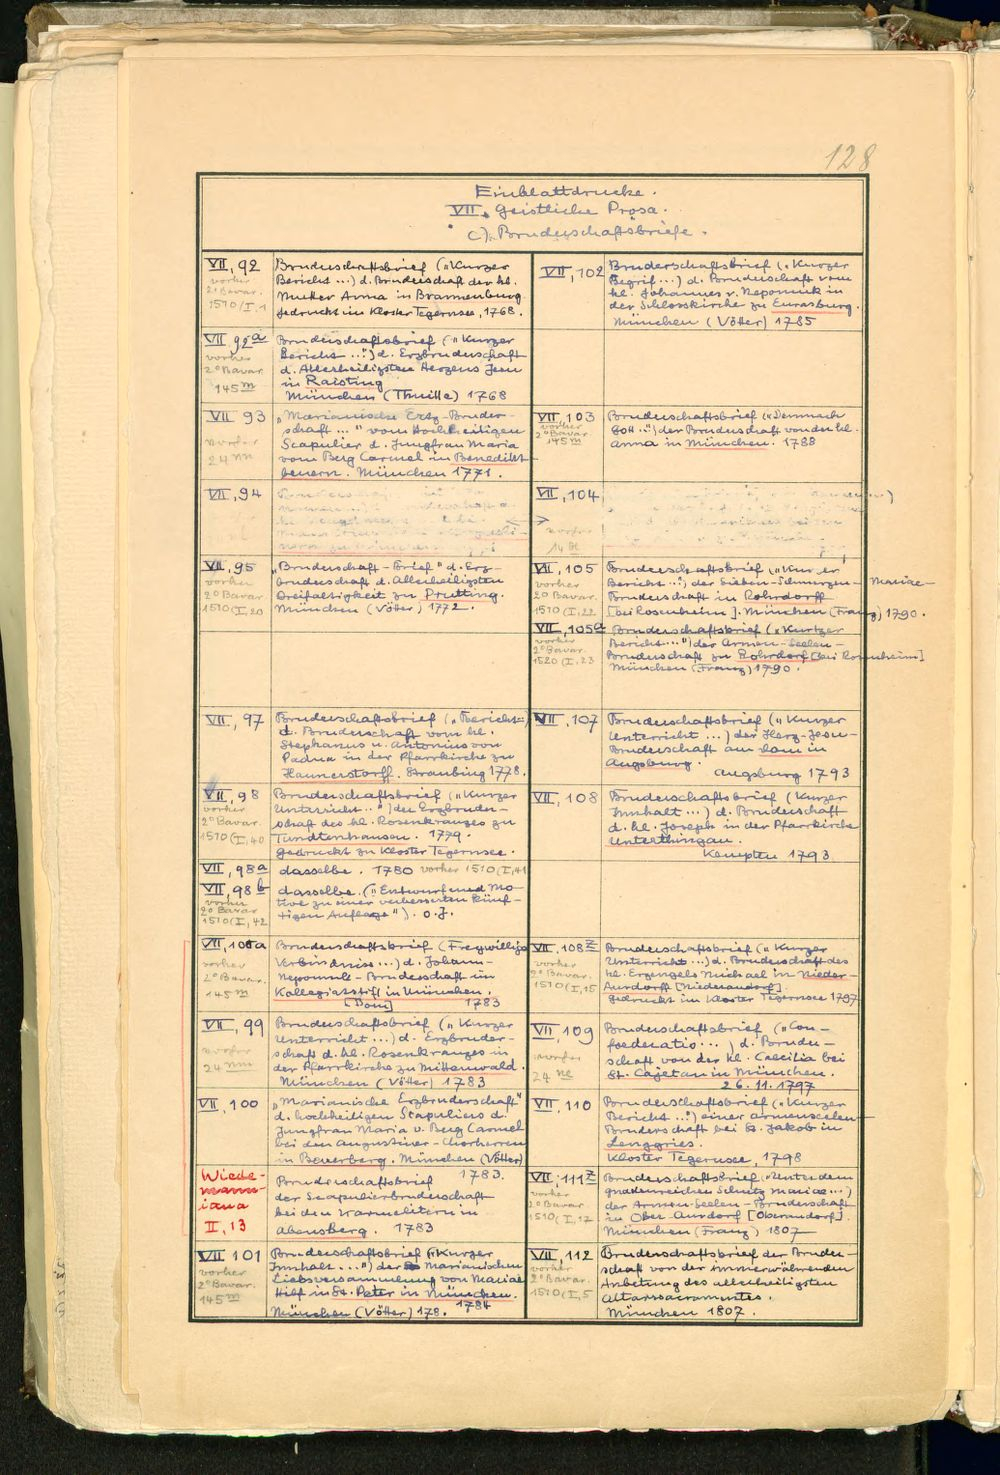 128
Einblattdrucke.
VII. Geistliche Prosa.
c) Bruderschaftsbriefe.
VII, 92
vorher
2° Bavar.
1510/I,1
Bruderschaftsbrief („Kurzer
Bericht ...) d. Bruderschaft der hl.
Mutter Anna in Brannenburg
gedruckt im Kloster Tegernsee, 1768.
VII, 92a
vorher
2° Bavar.
145m
Bruderschaftsbrief („Kurzer
Bericht ...") d. Erzbruderschaft
d. Allerheiligsten Herzens Jesu
in Raisting
München (Thuille) 1768
VII 93
vorher
24 nn
„Marianische Ertz-Bruder-
schaft ..." vom Hochheiligen
Scapulier d. Jungfrau Maria
vom Berg Carmel in Benedikt
beuern. München 1771.
VII, 94
VII, 95
vorher
2° Bavar.
1510(I,20
„Bruderschaft-Brief" d. Erz-
bruderschaft d. Allerheiligsten
Dreifaltigkeit zu Prutting.
München (Vötter) 1772.
VII, 97
Bruderschaftsbrief („Bericht")
d. Bruderschaft vom hl.
Stephanus u. Antonius von
Padua in der Pfarrkirche zu
Haunerstorff. Straubing 1778.
VII, 98
vorher
2° Bavar.
1510(I,40
Bruderschaftsbrief („Kurzer
Unterricht ..") der Erzbruder-
schaft des hl. Rosenkranzes zu
Tundtenhausen. 1779.
gedruckt zu Kloster Tegernsee.
VII, 98a
dasselbe. 1780 vorher 1510(I,41
VII, 98b
vorher
2° Bavar
1510(I,42
dasselbe. („Entwurf und Mo-
tive zu einer verbesserten künf-
tigen Auflage"). o.J.
VII, 100a
vorher
2° Bavar.
145m
Bruderschaftsbrief (Freywillige
Verbindniss...) d. Johann-
Nepomuk-Bruderschaft im
Kollegiatstift in München.
[Dom] 1783
VII, 99
vorher
24 nm
Bruderschaftsbrief („Kurzer
Unterricht ...) d. Erzbruder-
schaft d. hl. Rosenkranzes in
der Pfarrkirche zu Mittenwald.
München (Vötter) 1783
VII, 100
„Marianische Erzbruderschaft"
d. hochheiligen Scapuliers d.
Jungfrau Maria v. Berg Carmel
bei den Augustiner-Chorherren
in Beuerberg. München (Vötter)
1783.
Wiede-
mann-
iana
II, 13
Bruderschaftsbrief
der Scapulierbruderschaft
bei den Karmelitern in
Abensberg. 1783
VII 101
vorher
2° Bavar.
145m
Bruderschaftsbrief („Kurzer
Innhalt ...") der Marianischen
Liebsversammlung von Mariae
Hilf in St. Peter in München.
München (Vötter) 178. 1784
VII, 102
Bruderschaftsbrief („Kurzer
Begrif...) d. Bruderschaft vom
hl. Johannes v. Nepomuk in
der Schlosskirche zu Eurasburg.
München (Vötter) 1785
VII, 103
vorher
2° Bavar.
145m
Bruderschaftsbrief („Demnach
Gott ..") der Bruderschaft von der hl.
Anna in München. 1788
VII, 104
vorher
VII, 105
vorher
2° Bavar.
1510(I,22
Bruderschaftsbrief („Kurzer
Bericht ..") der Sieben-Schmerzen-Mariae-
Bruderschaft in Rohrdorff
[bei Rosenheim]. München (Franz) 1790.
VII, 105a
vorher
2° Bavar.
1520(I,23
Bruderschaftsbrief („Kurtzer
Bericht...") der Armen-Seelen-
Bruderschaft zu Rohrdorf [bei Rosenheim]
München (Franz) 1790.
VII, 107
Bruderschaftsbrief („Kurzer
Unterricht ...) der Herz-Jesu-
Bruderschaft am Dom in
Augsburg.
Augsburg 1793
VII, 108
Bruderschaftsbrief (Kurzer
Innhalt ...) d. Bruderschaft
d. hl. Joseph in der Pfarrkirche
Unterthingau.
Kempten 1793
VII, 108z
vorher
2° Bavar.
1510(I,15
Bruderschaftsbrief („Kurzer
Unterricht ...) d. Bruderschaft des
hl. Erzengels Michael in Nieder-
Aurdorff [Niederaudorf].
gedruckt im Kloster Tegernsee 1797
VII, 109
vorher
24 nl
Bruderschaftsbrief („Con-
foederatio ...) d. Bruder-
schaft von der hl. Caecilia bei
St. Cajetan in München.
26.11.1797
VII, 110
Bruderschaftsbrief („Kurzer
Bericht ...") einer Armenseelen-
Bruderschaft bei St. Jakob in
Lenggries.
Kloster Tegernsee, 1798
VII, 111z
vorher
2° Bavar.
1510(I,17
Bruderschaftsbrief („Unter dem
gnadenreichen Schutz Mariae...)
der Armen-Seelen-Bruderschaft
in Ober-Aurdorf [Oberaudorf].
München (Franz) 1807
VII, 112
vorher
2° Bavar.
1510(I,5
Bruderschaftsbrief der Bruder-
schaft von der immerwährenden
Anbetung des allerheiligsten
Altarssacramentes.
München 1807.